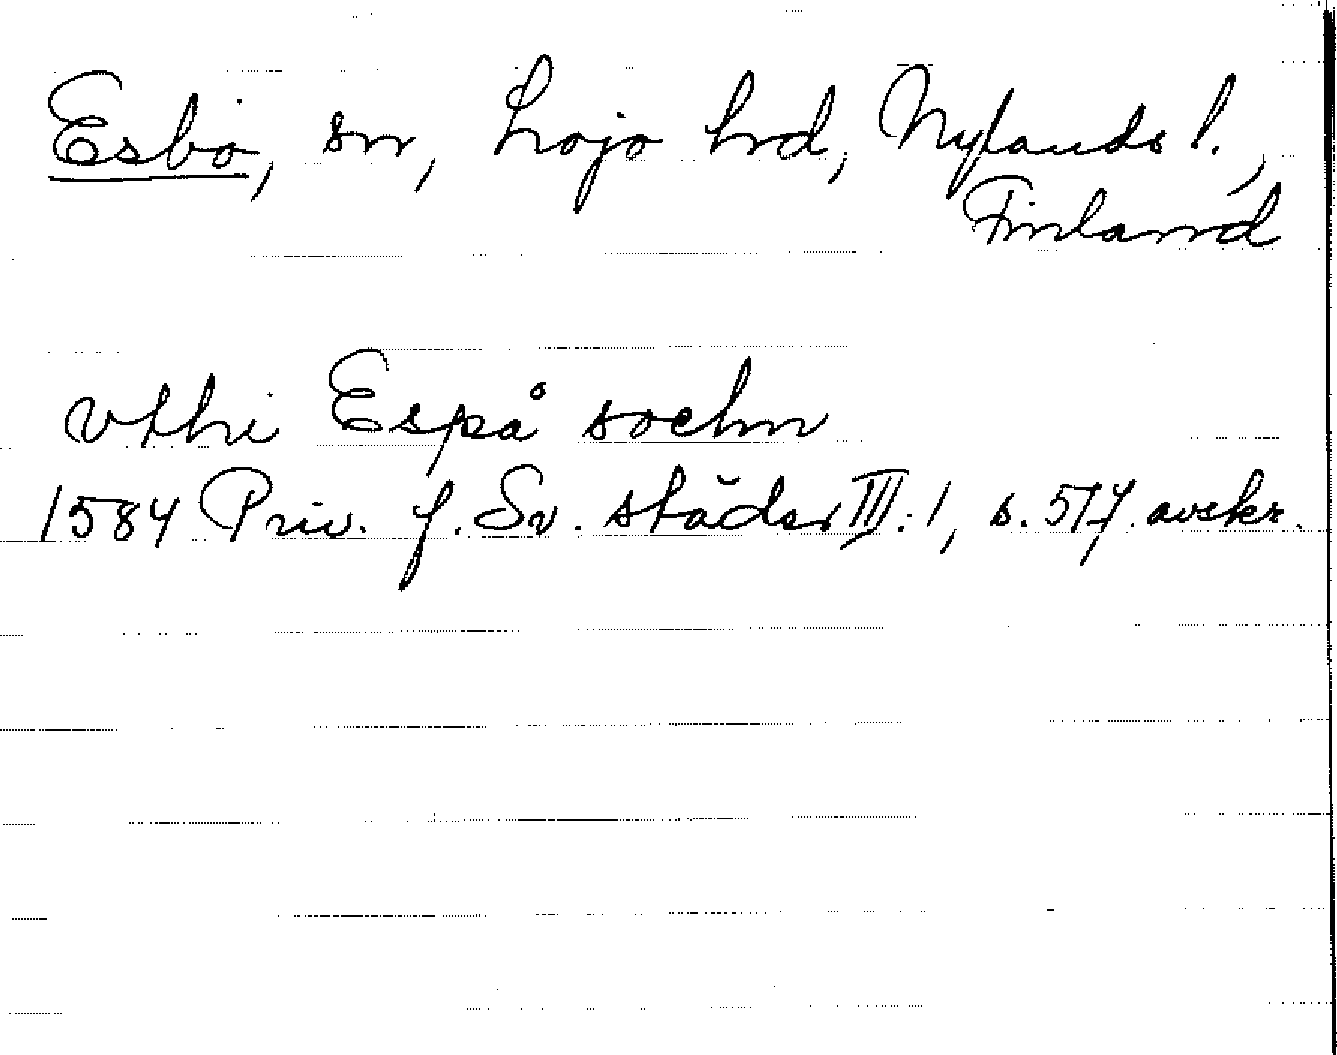 Esbo, sn, Lojo hrd, Nylands l.,
Finland
vthi Espå sochn
1584 Priv. f. Sv. städer III:1, s. 517. avskr.